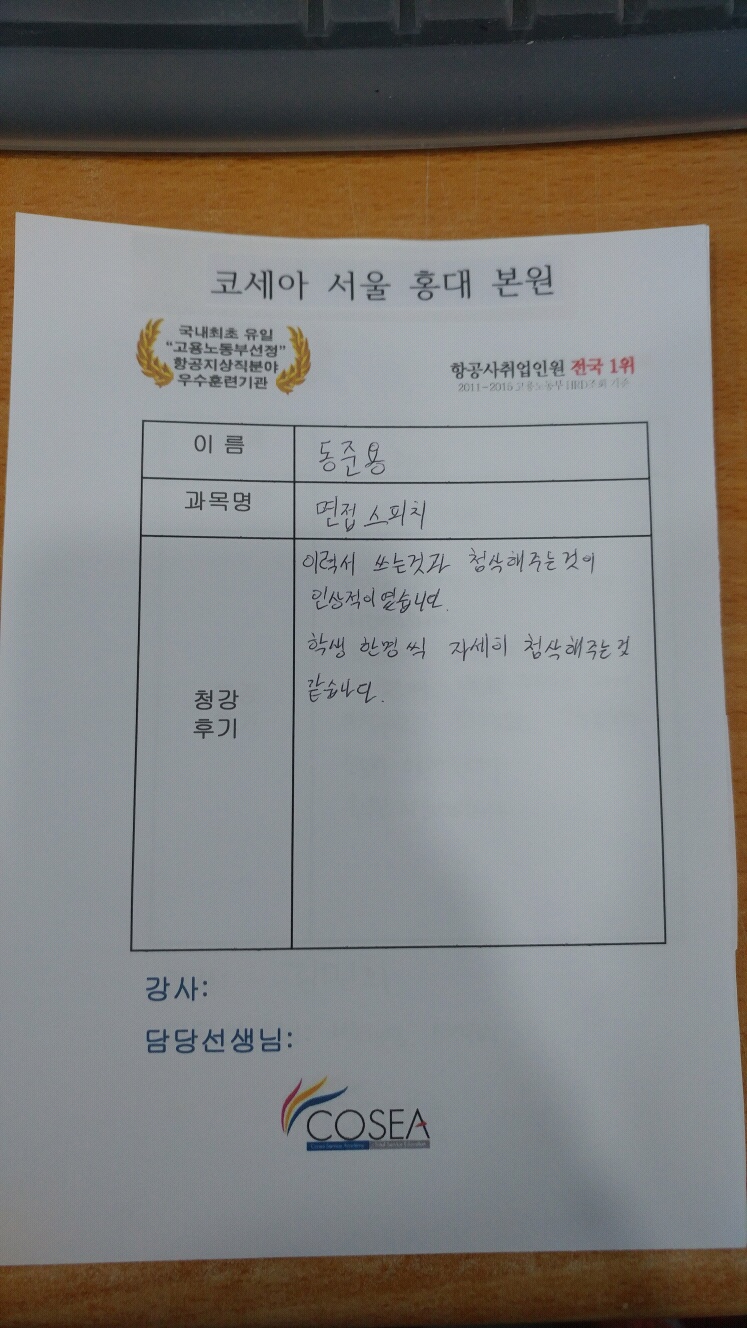 코세아 서울 홍대 본원
국내최초 유일
"고용노동부선정"
항공지상직분야
우수훈련기관
항공사취업인원 전국 1위
2011~2015 고용노동부 HRD조회 기준
이 름
동준용
과목명
면접 스피치
청강
후기
이력서 쓰는것과 첨삭해주는것이
인상적이였습니다.
학생 한명씩 자세히 첨삭해주는것
같습니다.
강사:
담당선생님:
COSEA